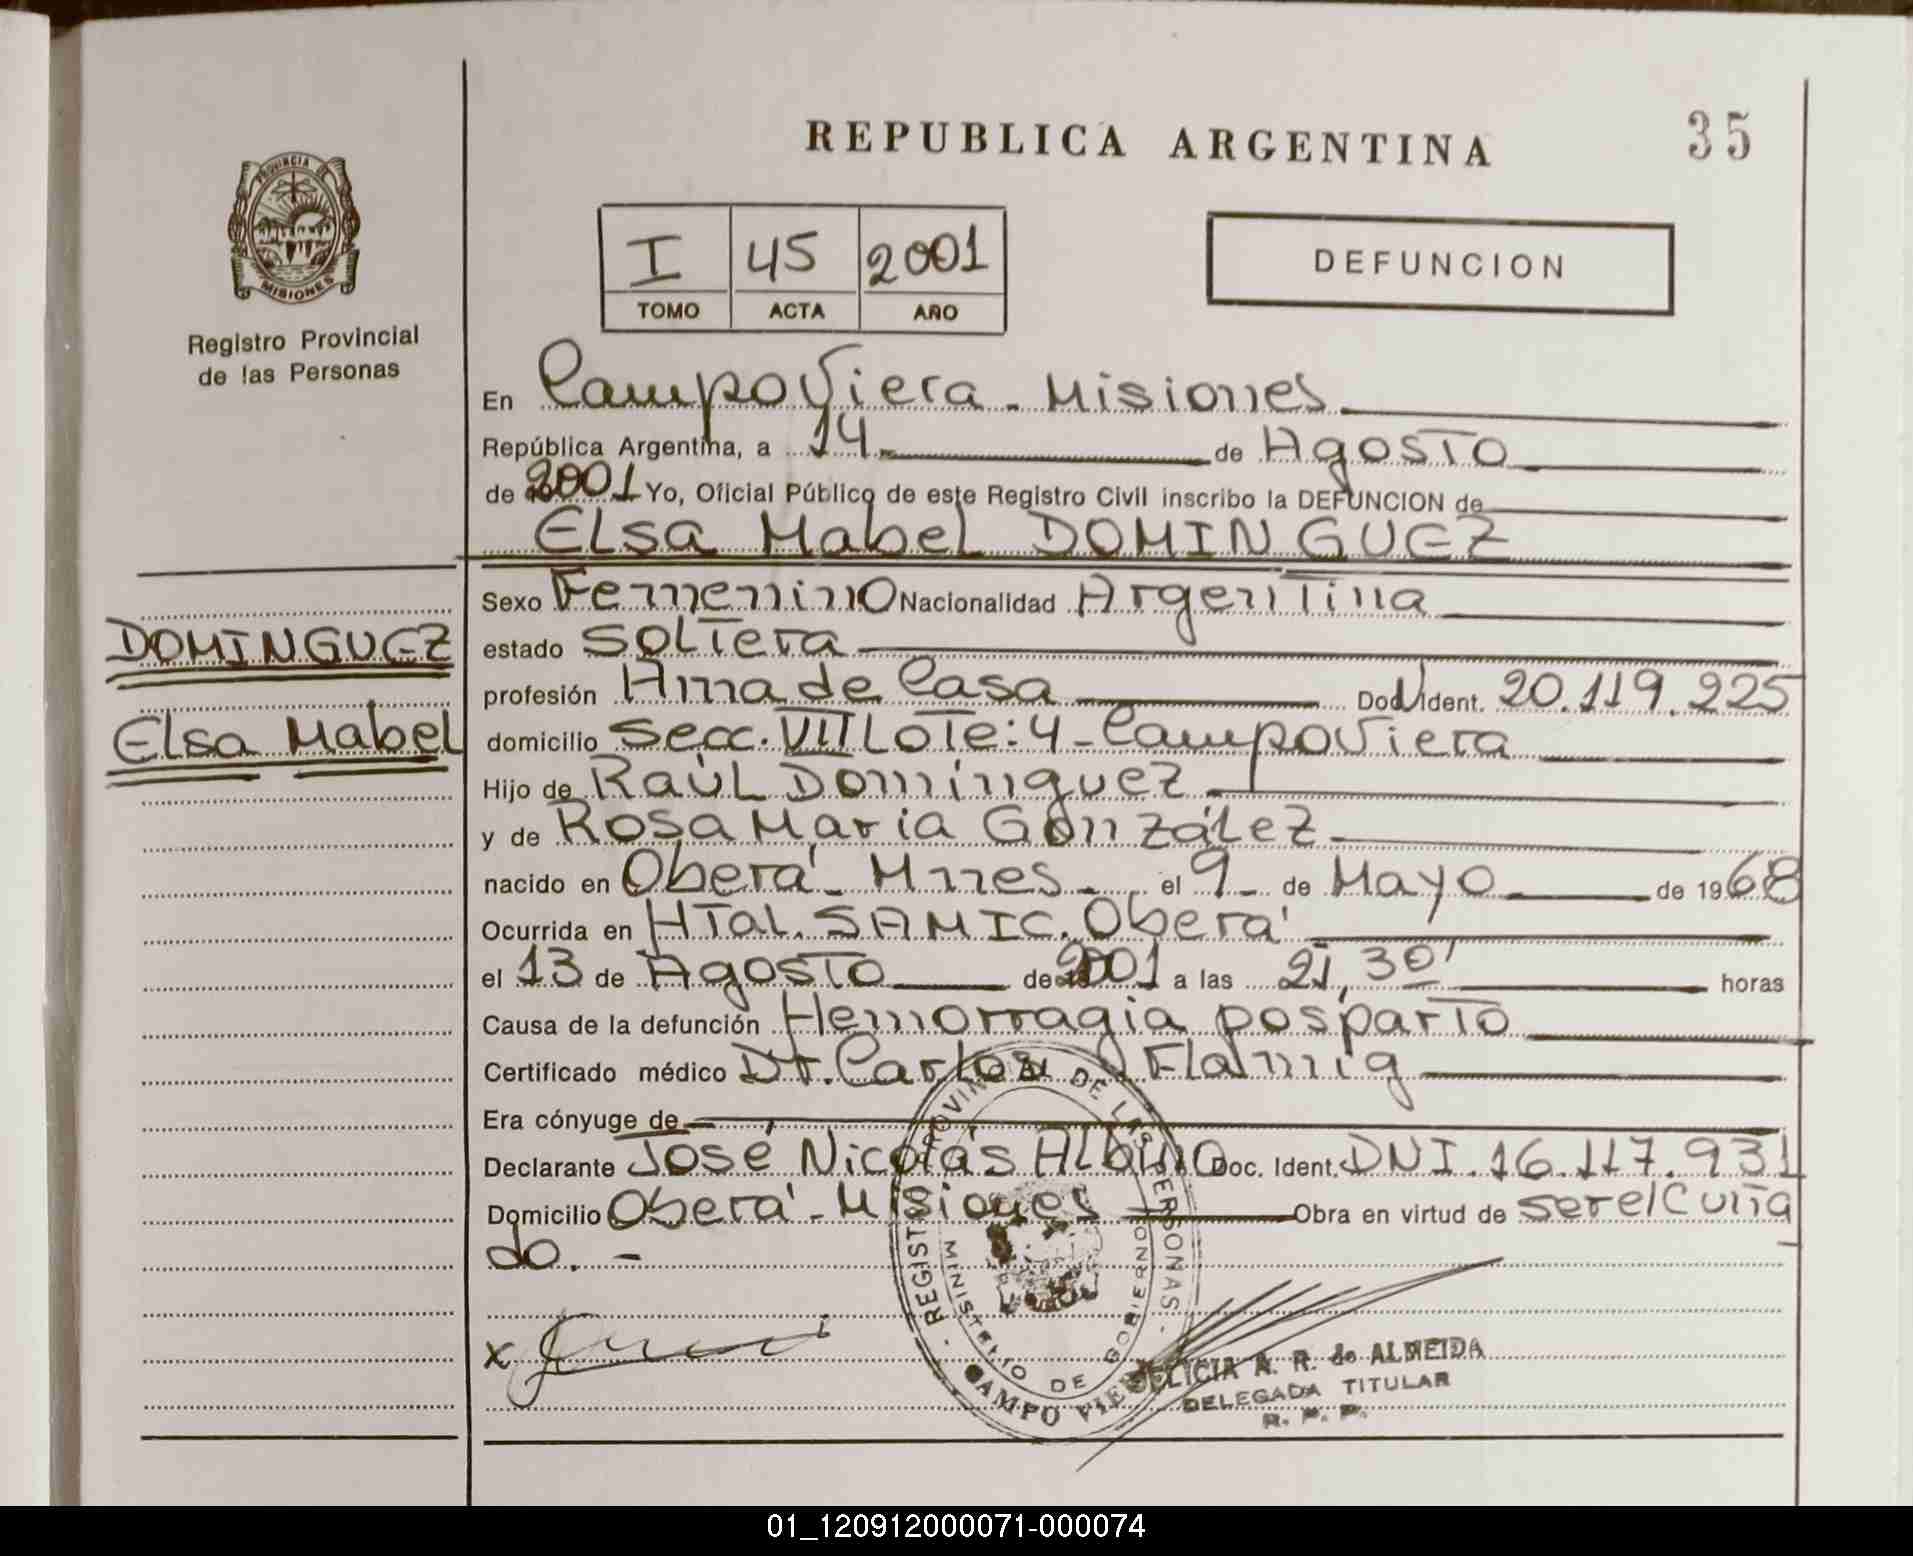 REPUBLICA ARGENTINA
35
PROVINCIA DE
MISIONES
Registro Provincial
de las Personas
I 45 2001
TOMO ACTA AÑO
DEFUNCION
En Campo Viera - Misiones
República Argentina, a 14 de Agosto
de 2001 Yo, Oficial Público de este Registro Civil inscribo la DEFUNCION de
Elsa Mabel DOMINGUEZ
DOMINGUEZ
Elsa Mabel
Sexo Femenino Nacionalidad Argentina
estado Soltera
profesión Ama de Casa Doc Ident. 20.119.225
domicilio Secc. VIII Lote: 4 - Campo Viera
Hijo de Raúl Domínguez
y de Rosa María González
nacido en Oberá - Mnes - el 9 - de Mayo de 1968
Ocurrida en HTal. SAMIC. Oberá
el 13 de Agosto de 2001 a las 21,30' horas
Causa de la defunción Hemorragia posparto
Certificado médico Dr. Carlos Flamig
Era cónyuge de
Declarante José Nicolás Albino Doc. Ident. DNI. 16.117.931
Domicilio Oberá - Misiones Obra en virtud de ser el Cuña
do. -
x
- REGISTRO PROVINCIAL DE LAS PERSONAS -
MINISTERIO DE GOBIERNO
CAMPO VIERA
FELICIA A. R. de ALMEIDA
DELEGADA TITULAR
R. P. P.
01_120912000071-000074